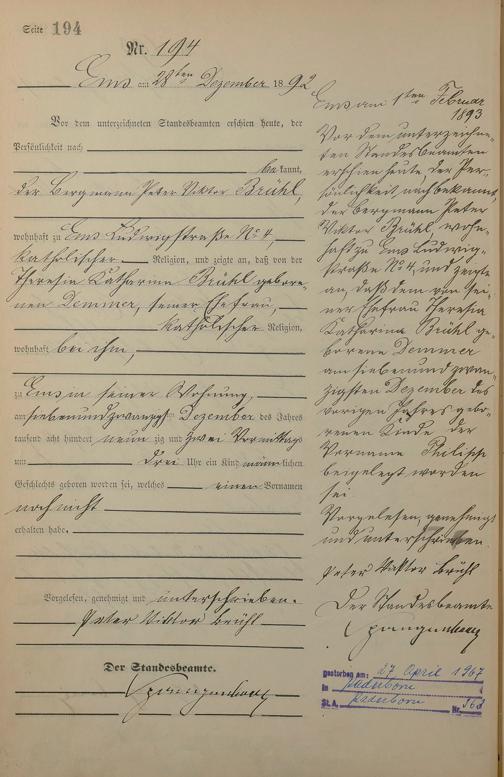 Seite 194
Nr. 194
Ems am 28ten Dezember 1892
Vor dem unterzeichneten Standesbeamten erschien heute, der
Persönlichkeit nach
bekannt,
der Bergmann Peter Viktor Brühl,
wohnhaft zu Ems Ludwigstraße No 4,
katholischer Religion, und zeigte an, daß von der
Theresia Katharina Brühl gebore-
nen Demmer, seiner Ehefrau,
katholischer Religion,
wohnhaft bei ihm,
zu Ems in seiner Wohnung,
am siebenundzwanzigsten Dezember des Jahres
tausend acht hundert neunzig und zwei Vormittags
um drei Uhr ein Kind männlichen
Geschlechts geboren worden sei, welches einen Vornamen
noch nicht
erhalten habe.
Vorgelesen, genehmigt und unterschrieben.
Peter Viktor Brühl
Der Standesbeamte.
Spangenberg
Ems am 1ten Februar
1893
Vor dem unterzeichne-
ten Standesbeamten
erschien heute, der Per-
sönlichkeit nach bekannt,
der Bergmann Peter
Viktor Brühl, wohn-
haft zu Ems Ludwig-
straße No 4, und zeigte
an, daß dem von sei-
ner Ehefrau Theresia
Katharina Brühl ge-
borene Demmer
am siebenundzwan-
zigsten Dezember des
vorigen Jahres gebo-
renen Kinde der
Vorname Philipp
beigelegt worden
sei
Vorgelesen, genehmigt
und unterschrieben
Peter Viktor Brühl
Der Standesbeamte
Spangenberg
gestorben am: 27 April 1967
in Paderborn
St. A. Paderborn Nr.